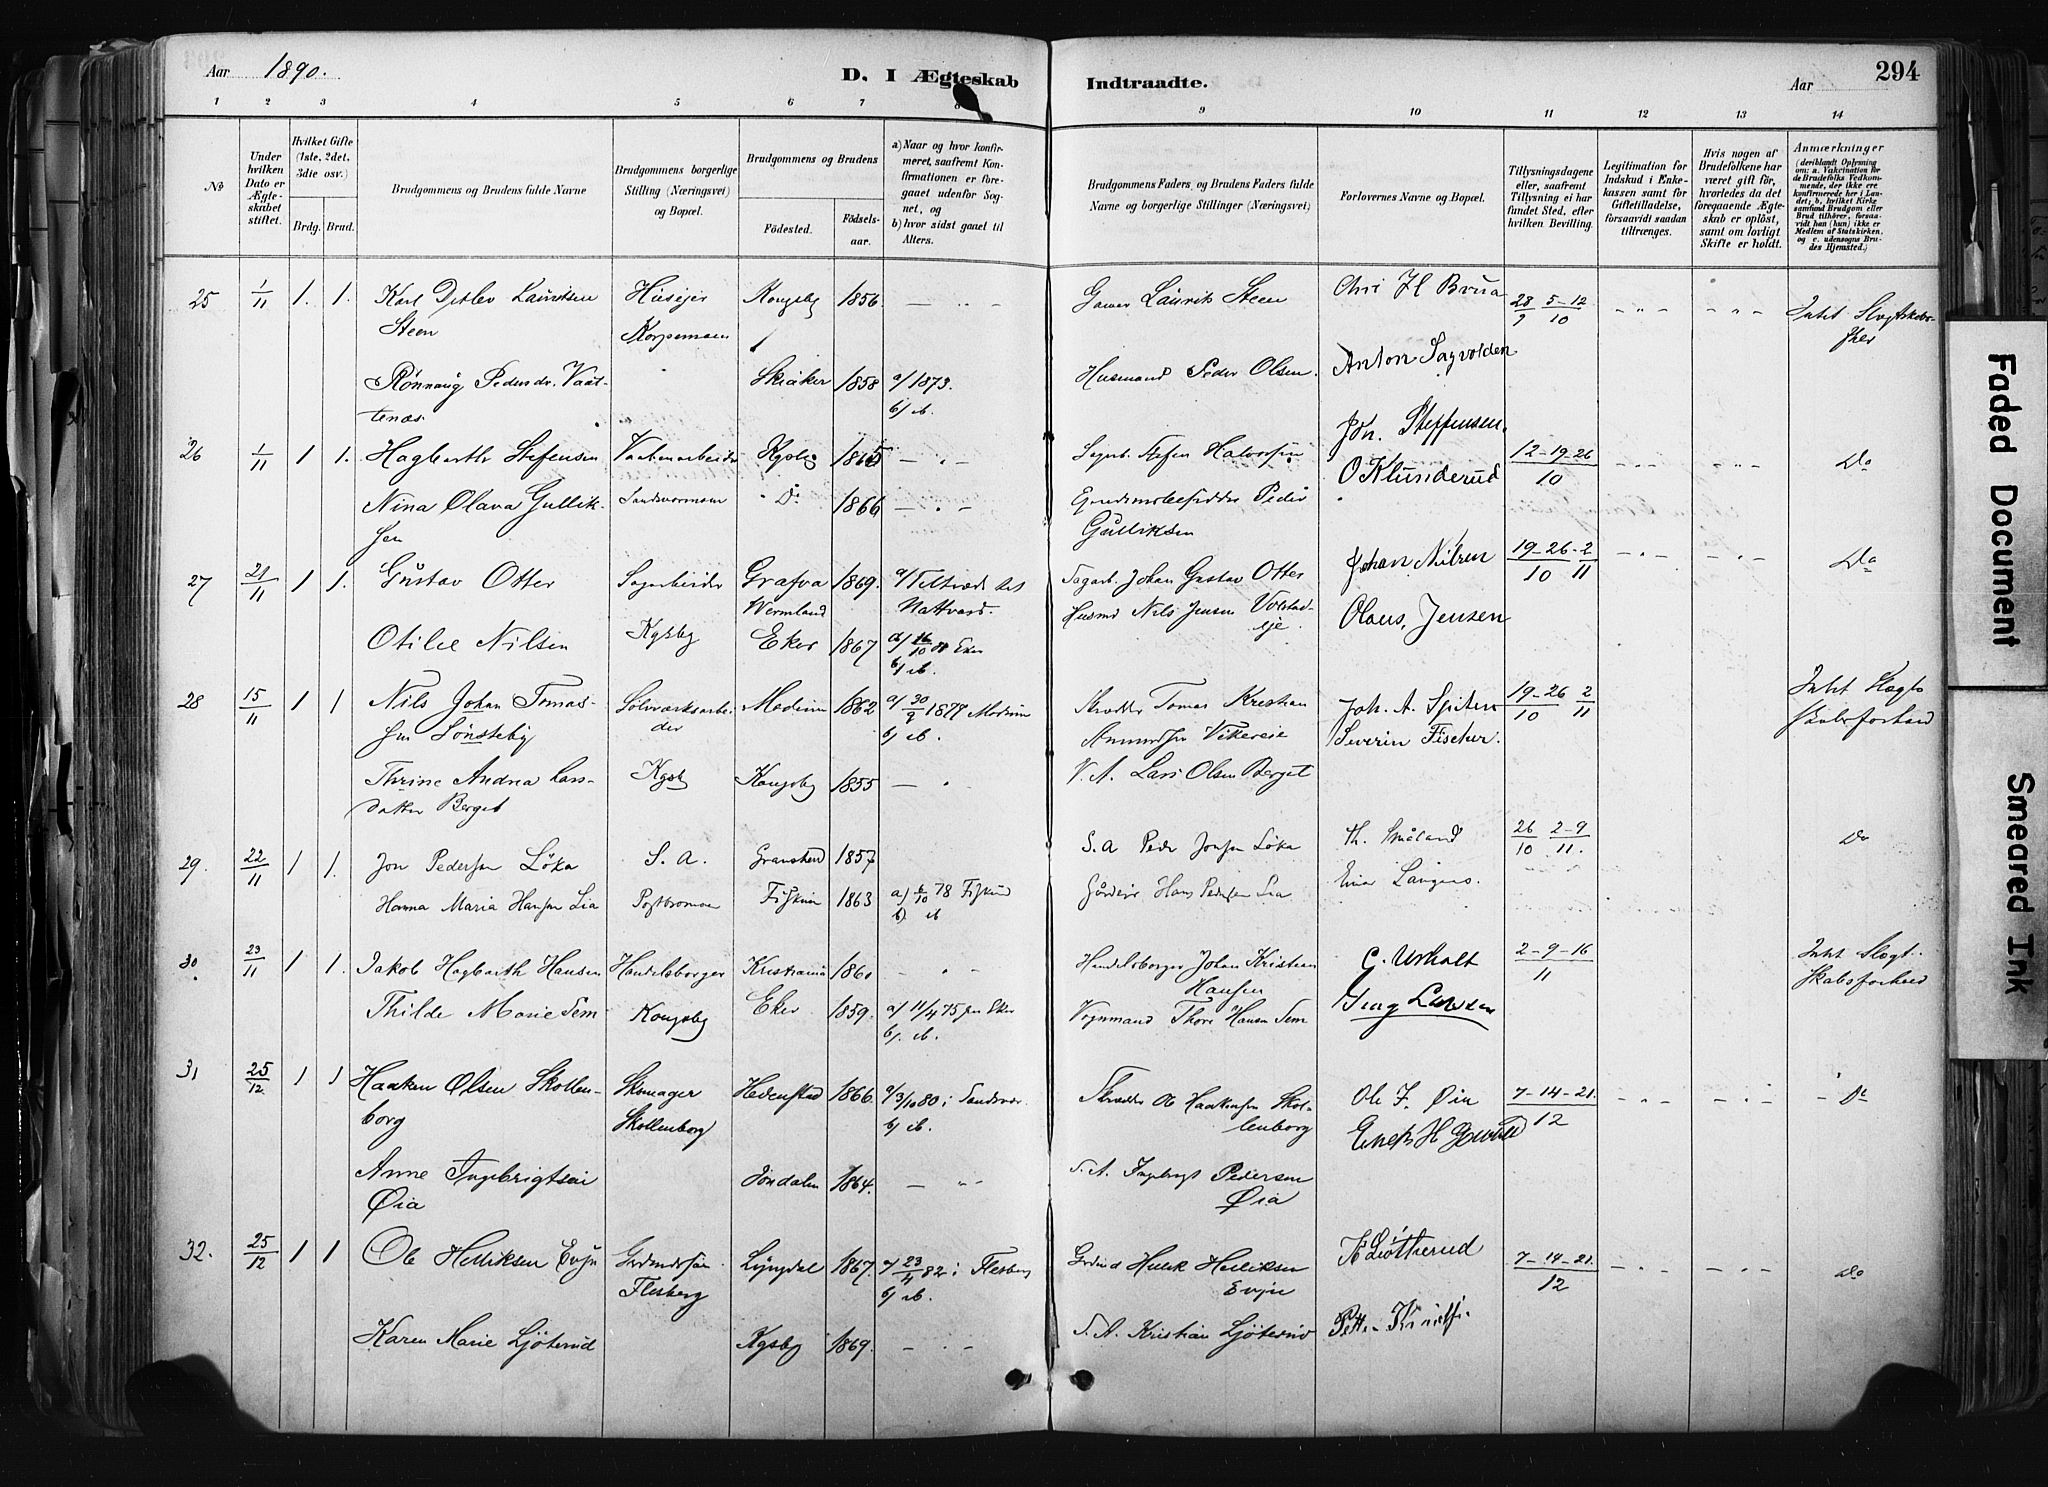 Aar 1890.
D. I Ægteskab Indtraadte.
Aar
294
1 2 3 4 5 6 7 8 9 10 11 12 13 14
No
Under hvilken Dato er Ægteskabet stiftet.
Hvilket Gifte (1ste, 2det, 3die osv.)
Brdg. Brud.
Brudgommens og Brudens fulde Navne
Brudgommens borgerlige Stilling (Næringsvei) og Bopæl.
Brudgommens og Brudens
Fødested.
Fødselsaar.
a) Naar og hvor konfirmeret, saafremt Konfirmationen er foregaaet udenfor Sognet, og
b) hvor sidst gaaet til Alters.
Brudgommens Faders og Brudens Faders fulde Navne og borgerlige Stillinger (Næringsvei)
Forlovernes Navne og Bopæl.
Tillysningsdagene eller, saafremt Tillysning ei har fundet Sted, efter hvilken Bevilling.
Legitimation for Indskud i Enkekassen samt for Giftetilladelse, forsaavidt saadan tiltrænges.
Hvis nogen af Brudefolkene har været gift før, hvorledes da det foregaaende Ægteskab er opløst, samt om lovligt Skifte er holdt.
Anmærkninger (deriblandt Oplysning om: a. Vaccination for de Brudefolks Vedkommende, der ikke ere konfirmerede her i Landet; b. hvilket Kirkesamfund Brudgom eller Brud tilhører, forsaavidt han (hun) ikke er Medlem af Statskirken, og c. udensogns Brudes Hjemsted.)
25 1/11 1. 1. Karl Detlev Lauritsen Husejer Kongsbg 1856 Lauritz Steen Chri H Brua 28/9 5-12/10 Intet
Steen Korpsmaen
Rønnaug Pedersdr. Vaat- Skiaker 1858 a/ 1873. Husmand Peder Olsen. Anton Sagvolden
tenæs b/ ib.
26 1/11 1 1. Hagbarth Stefensen Vaabenarbeider Kgsbg 1865 Stefen Halvorsen Joh. Steffensen. 12-19-26/10 Do
Nina Olava Gullik- Sandsværmoen Do 1866 Peder O Klunderud
sen Gulliksen
27 21/11 1 1. Gustav Otter Sagarbeider Grafva 1869. Sagarb. Johan Gustav Otter Johan Nilsen 19-26/10 - 2/11 Do
Wermland Nattvard. Husmd Nils Jensen Olaus Jensen
Otilie Nilsen Kgsbg Eker 1867 a/ 16/10 Eker
b/ ib.
28 15/11 1 1 Nils Johan Tomas- Sølvværksarbei- Modum 1862 a/ 30/9 1877 Modum Skrædder Tomas Kristian Joh. A. 19-26/10 2/11 Intet Slægt-
sen Sønsteby der b/ ib. Amundsen Vikereie Severin Fischer. skabsforhold
Thrine Andrea Lars- Kgsb Kongsbg 1855 V. A. Lars Olsen Berget
datter Berget
29. 22/11 1 1. Jon Pedersen Løka S. A. Gransherd 1857 S. A Peder Jonsen Løka Th. Småland 26/10 2-9/11. Do
Hanna Maria Hansen Lia Fiskum 1863 a) 6/10 78 Fiskum Gårdeier Hans Pedersen Lia
b) ib
30. 23/11 1 1. Jakob Hagbarth Hansen Handelsborger Kristiania 1860 Handelsborger Johan Kristian C. Urholt 2-9-16/11 Intet Slægt-
Hansen skabsforhold
Thilde Marie Sem Kongsbg Eker 1859. a/ 11/4 75 Eker Vognmand Thore Hansen Sem
b/. ib.
31 25/12 1 1 Haaken Olsen Skollen- Skomager Hedenstad 1866. a/ 3/10 80 i Sandsvær. Skrædder Ole Haakensen Skol- Ole J. Øia 7-14-21./12 Do
borg Skollenborg b/ ib. lenborg
Anne Ingebrigtsen Jondalen 1864. S. A. Ingebrigt Pedersen
Øia Øia
32. 25/12 1 1 Ole Helliksen Evju Lyngdal 1867. a/ 23/4 82 i Flesberg Helliksen 7-14-21./12 Do
Flesberg b/ ib. Evju
Karen Marie Ljøterud Kgsbg 1869. S. A. Kristian Ljøterud
Faded Document
Smeared Ink